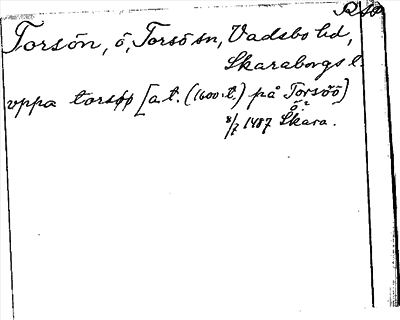 Torsön, ö, Torsö sn, Vadsbo hd,
Skaraborgs l
vppa torsøø [a.t. (1600-t.) på Torsöö]
ö?
8/7 1487 Skara.